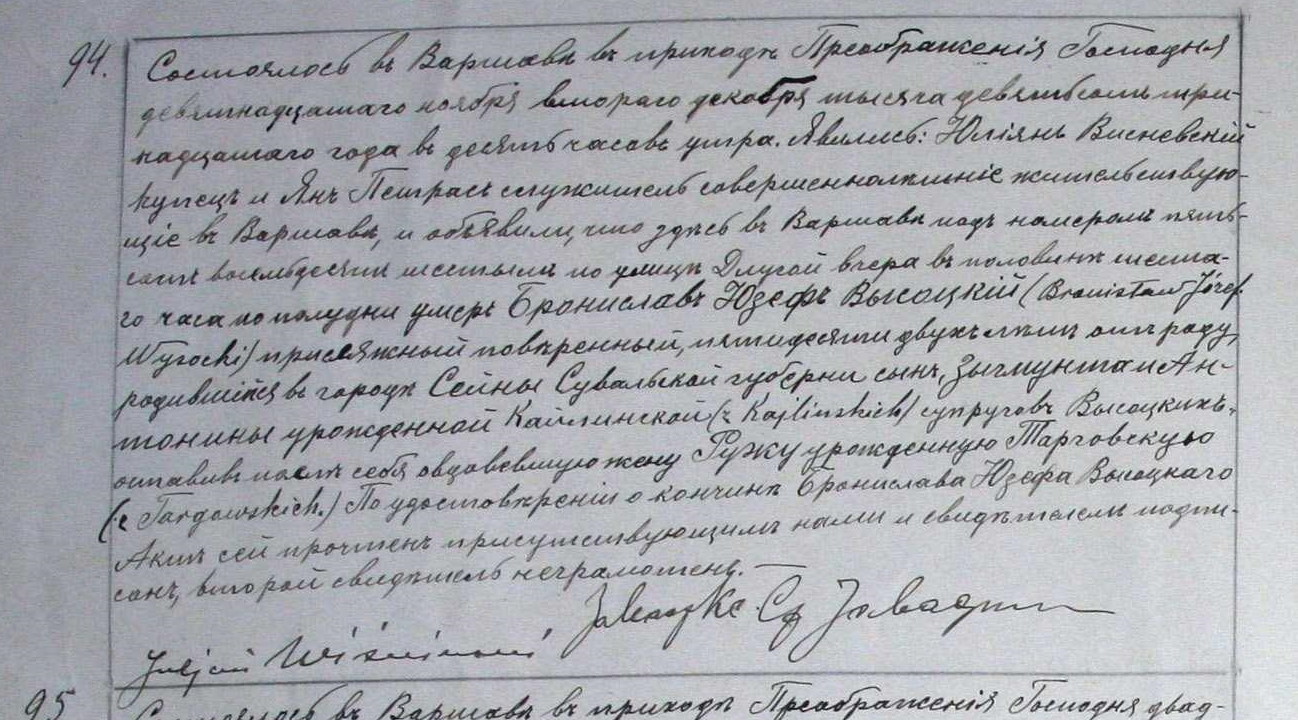 94.
Состоялось въ Варшавѣ въ приходѣ Преображенія Господня
девятнадцатаго ноября второго декабря тысяча девятьсотъ три-
надцатаго года въ десять часовъ утра. Явились: Юліянъ Висневскій
купецъ и Янъ Петрасъ служитель совершеннолѣтніе жительствую-
щіе въ Варшавѣ, и объявили, что здѣсь въ Варшавѣ подъ номеромъ пять-
сотъ восемьдесятъ шестымъ по улицѣ Длугой вчера въ половинѣ шеста-
го часа по полудни умеръ Брониславъ Юзефъ Высоцкій (Bronisław Józef
Wysocki) присяжный повѣренный, пятидесяти двухъ лѣтъ отъ роду,
родившійся въ городѣ Сейны Сувалькой губерніи сынъ, Зыгмунта и Ан-
тонины урожденной Кайлинской (z Kajlinskich) супруговъ Высоцкихъ,
оставивъ послѣ себя овдовѣвшую жену Ружу урожденную Тарговскую
(z Targowskich.) По удостовѣреніи о кончинѣ Бронислава Юзефа Высоцкаго
Актъ сей прочтенъ присутствующимъ нами и свидѣтелемъ подпи-
санъ, второй свидѣтель неграмотенъ. —
Juljan Wiśniewski
95
Состоялось въ Варшавѣ въ приходѣ Преображенія Господня двад-